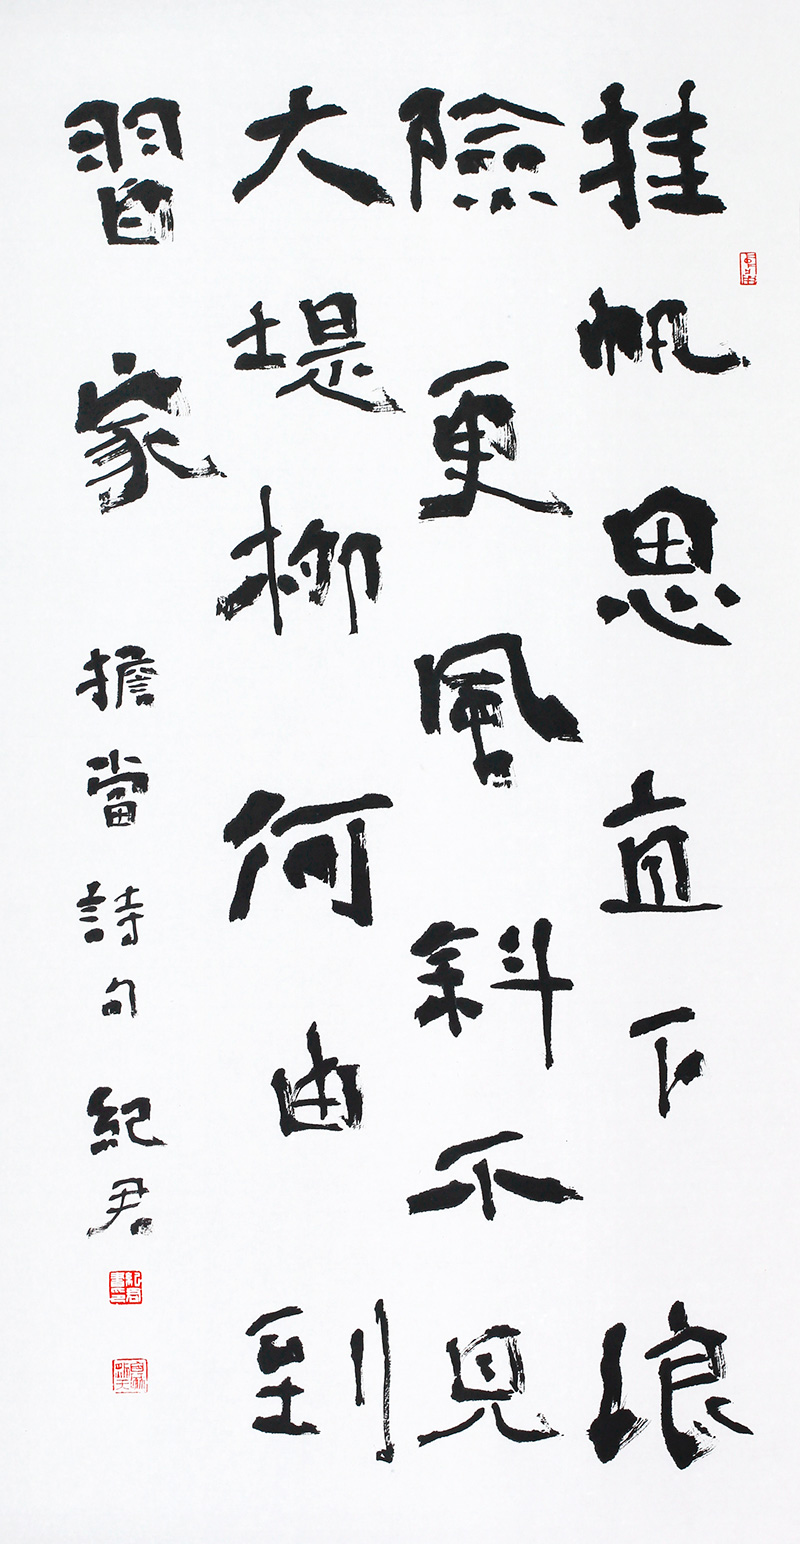 挂帆思直下浪
險更風斜不見
大堤柳何由到
習家
擔當詩句 紀君